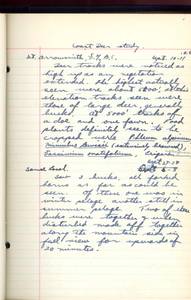 Coast Deer study.
Mt. Arrowsmith, V.I., B.C. Sept. 10-11
Deer tracks were noticed as
high up as any vegetation
extended. The highest actually
seen were about 5000'; at this
elevation tracks seen were
those of large deer, generally
bucks. At 5000' tracks of
a doe and one fawn. Food
plants definitely seen to be
cropped were
Mimulus lewisii (extensively browsed),
Vaccinium ovalifolium,
Sept
Saw 3 bucks, all
as far as could be
seen. Of these one was in
winter pelage another still in
summer pelage. Two of these
bucks were together & when
disturbed made off together
along the mountain side in
full view for upwards of
20 minutes.